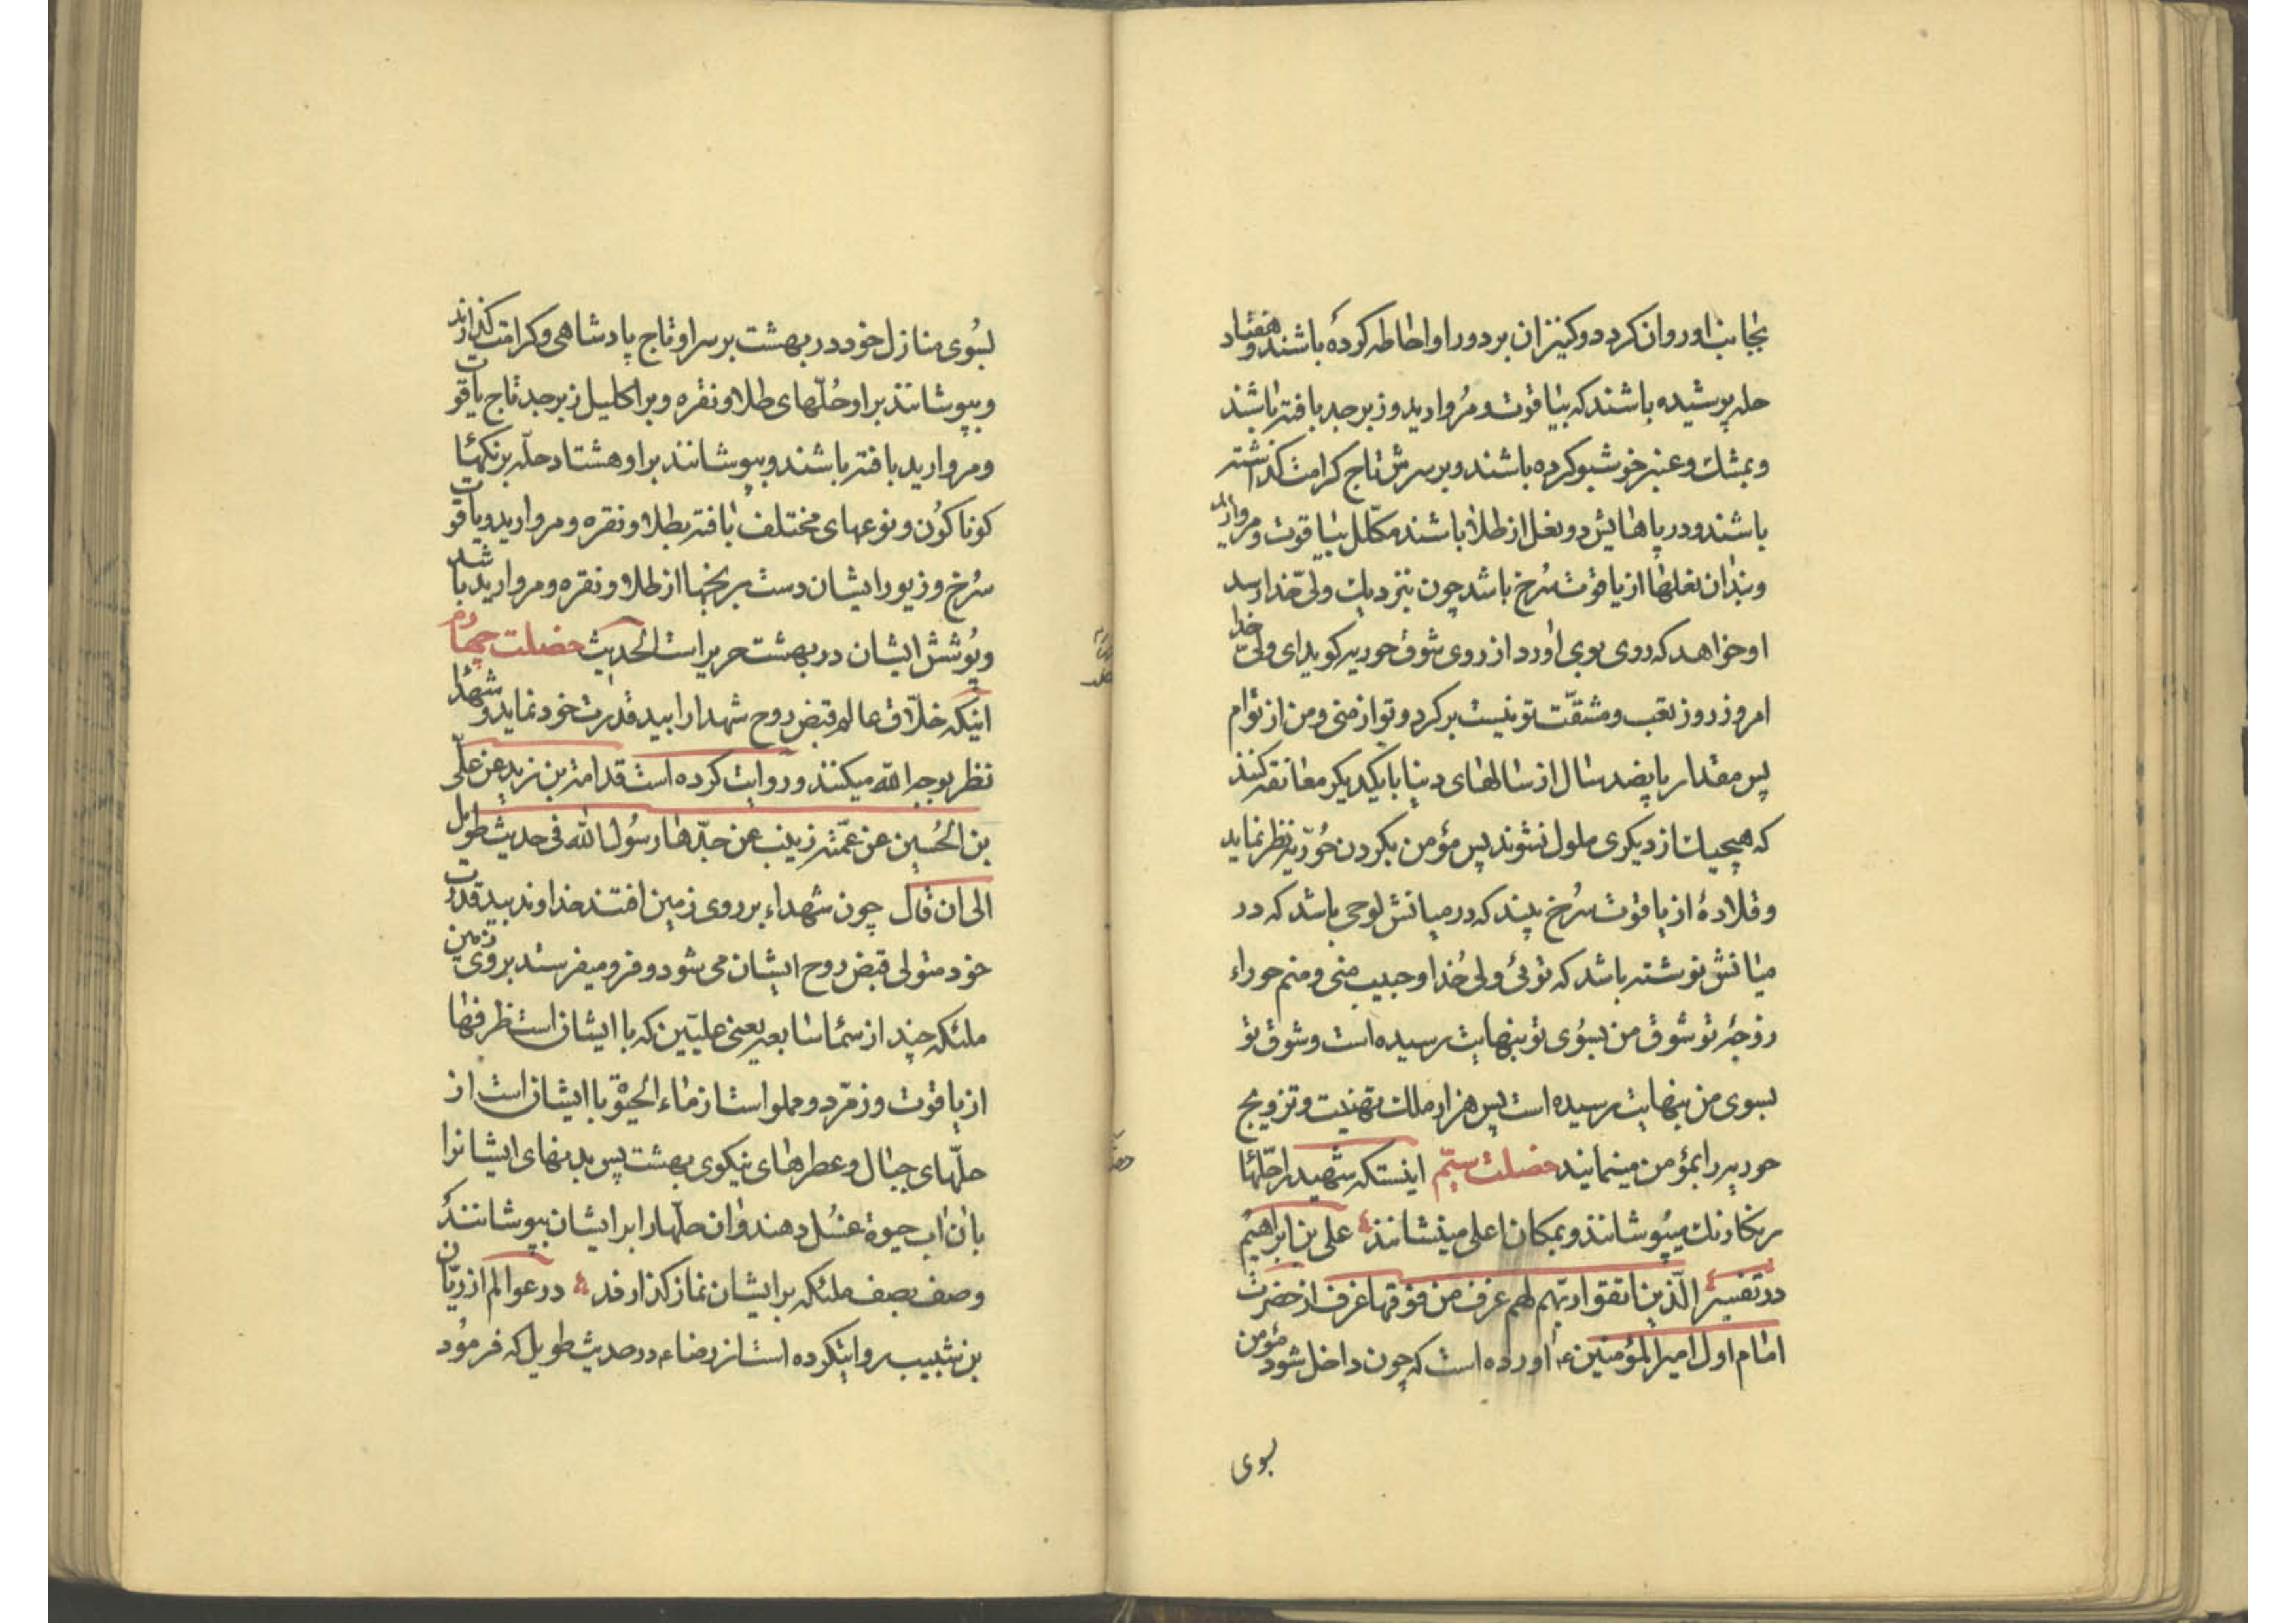 بجانب او روان کردد و کنیزان بر دور او احاطه کرده باشند و هفتاد
حله پوشیده باشند که بیاقوت و مروارید و زبرجد بافته باشند
و بمشک و عنبر خوشبو کرده باشند و بر سرش تاج کرامت کذاشته
باشند و در پاهایش دو نعل از طلا باشند مکلل بیاقوت و مروارید
و بندان نعلها از یاقوت سرخ باشد چون بنزدیک ولی خدا رسد
او خواهد که روی بوی اورد از روی شوق حوریه کوید ای ولی خدا
امروز روز تعب و مشقت تو نیست بر کرد و تو از منی و من از توام
پس مقدار پانصد سال از سالهای دنیا با یکدیکر معانقه کنند
که هیچیک از دیکری ملول نشوند پس مؤمن بکردن حوریه نظر نماید
و قلادهٔ از یاقوت سرخ بیند که در میانش لوحی باشد که در
میانش نوشته باشد که توئی ولی خدا و حبیب منی و منم حوراء
زوجهٔ تو شوق من بسوی تو بنهایت رسیده است و شوق تو
بسوی من بنهایت رسیده است پس هزار ملک تهنیت و تزویج
حوریه را بمؤمن مینمایند خصلت سیّم اینستکه شهید را حلّها
رنکارنک میپوشانند و بمکان اعلی مینشانند علی بن ابراهیم
در تفسیر الّذین اتقوا ربّهم لهم غرف من فوقها غرف از حضرت
امام اول امیر المؤمنین ع اورده است که چون داخل شود مؤمن
بسوی
بسوی منازل خود در بهشت بر سر او تاج پادشاهی و کرامت کذارند
و بپوشانند بر او حُلّهای طلا و نقره و بر اکلیل زبرجد تاج یاقوت
و مروارید بافته باشند و بپوشانند بر او هشتاد حلّه برنکها
کوناکون و نوعهای مختلف بافته بطلا و نقره و مروارید و یاقوت
سرخ و زیور ایشان دست برنجها از طلا و نقره و مروارید باشد
و پوشش ایشان در بهشت حریر است الحدیث خصلت چهارم
اینکه خلّاق عالم قبض روح شهدا را بید قدرت خود نماید و شهدا
نظر بوجه الله میکنند و روایت کرده است قدامة بن زید عن علّی
بن الحُسین عن عمّته زینب عن جدّها رسُول الله فی حدیث طویل
الی ان قال چون شهداء بر روی زمین افتند خداوند بید قدرت
خود متولی قبض روح ایشان می شود و فرو میفرستد بروی زمین
ملئکه چند از سماء سابعه یعنی علیّین که با ایشان است ظرفها
از یاقوت و زمّرد و مملو است از ماء الحیوة با ایشان است از
حلّهای جبال و عطرهای نیکوی بهشت پس بدنهای ایشانرا
بان اب حیوة غسُل دهند و ان حلّها را بر ایشان بپوشانند
و صف بصف ملئکه بر ایشان نماز کذارند در عوالم از ریّان
بن شبیب روایتکرده است از رضا ع در حدیث طویل که فرمود